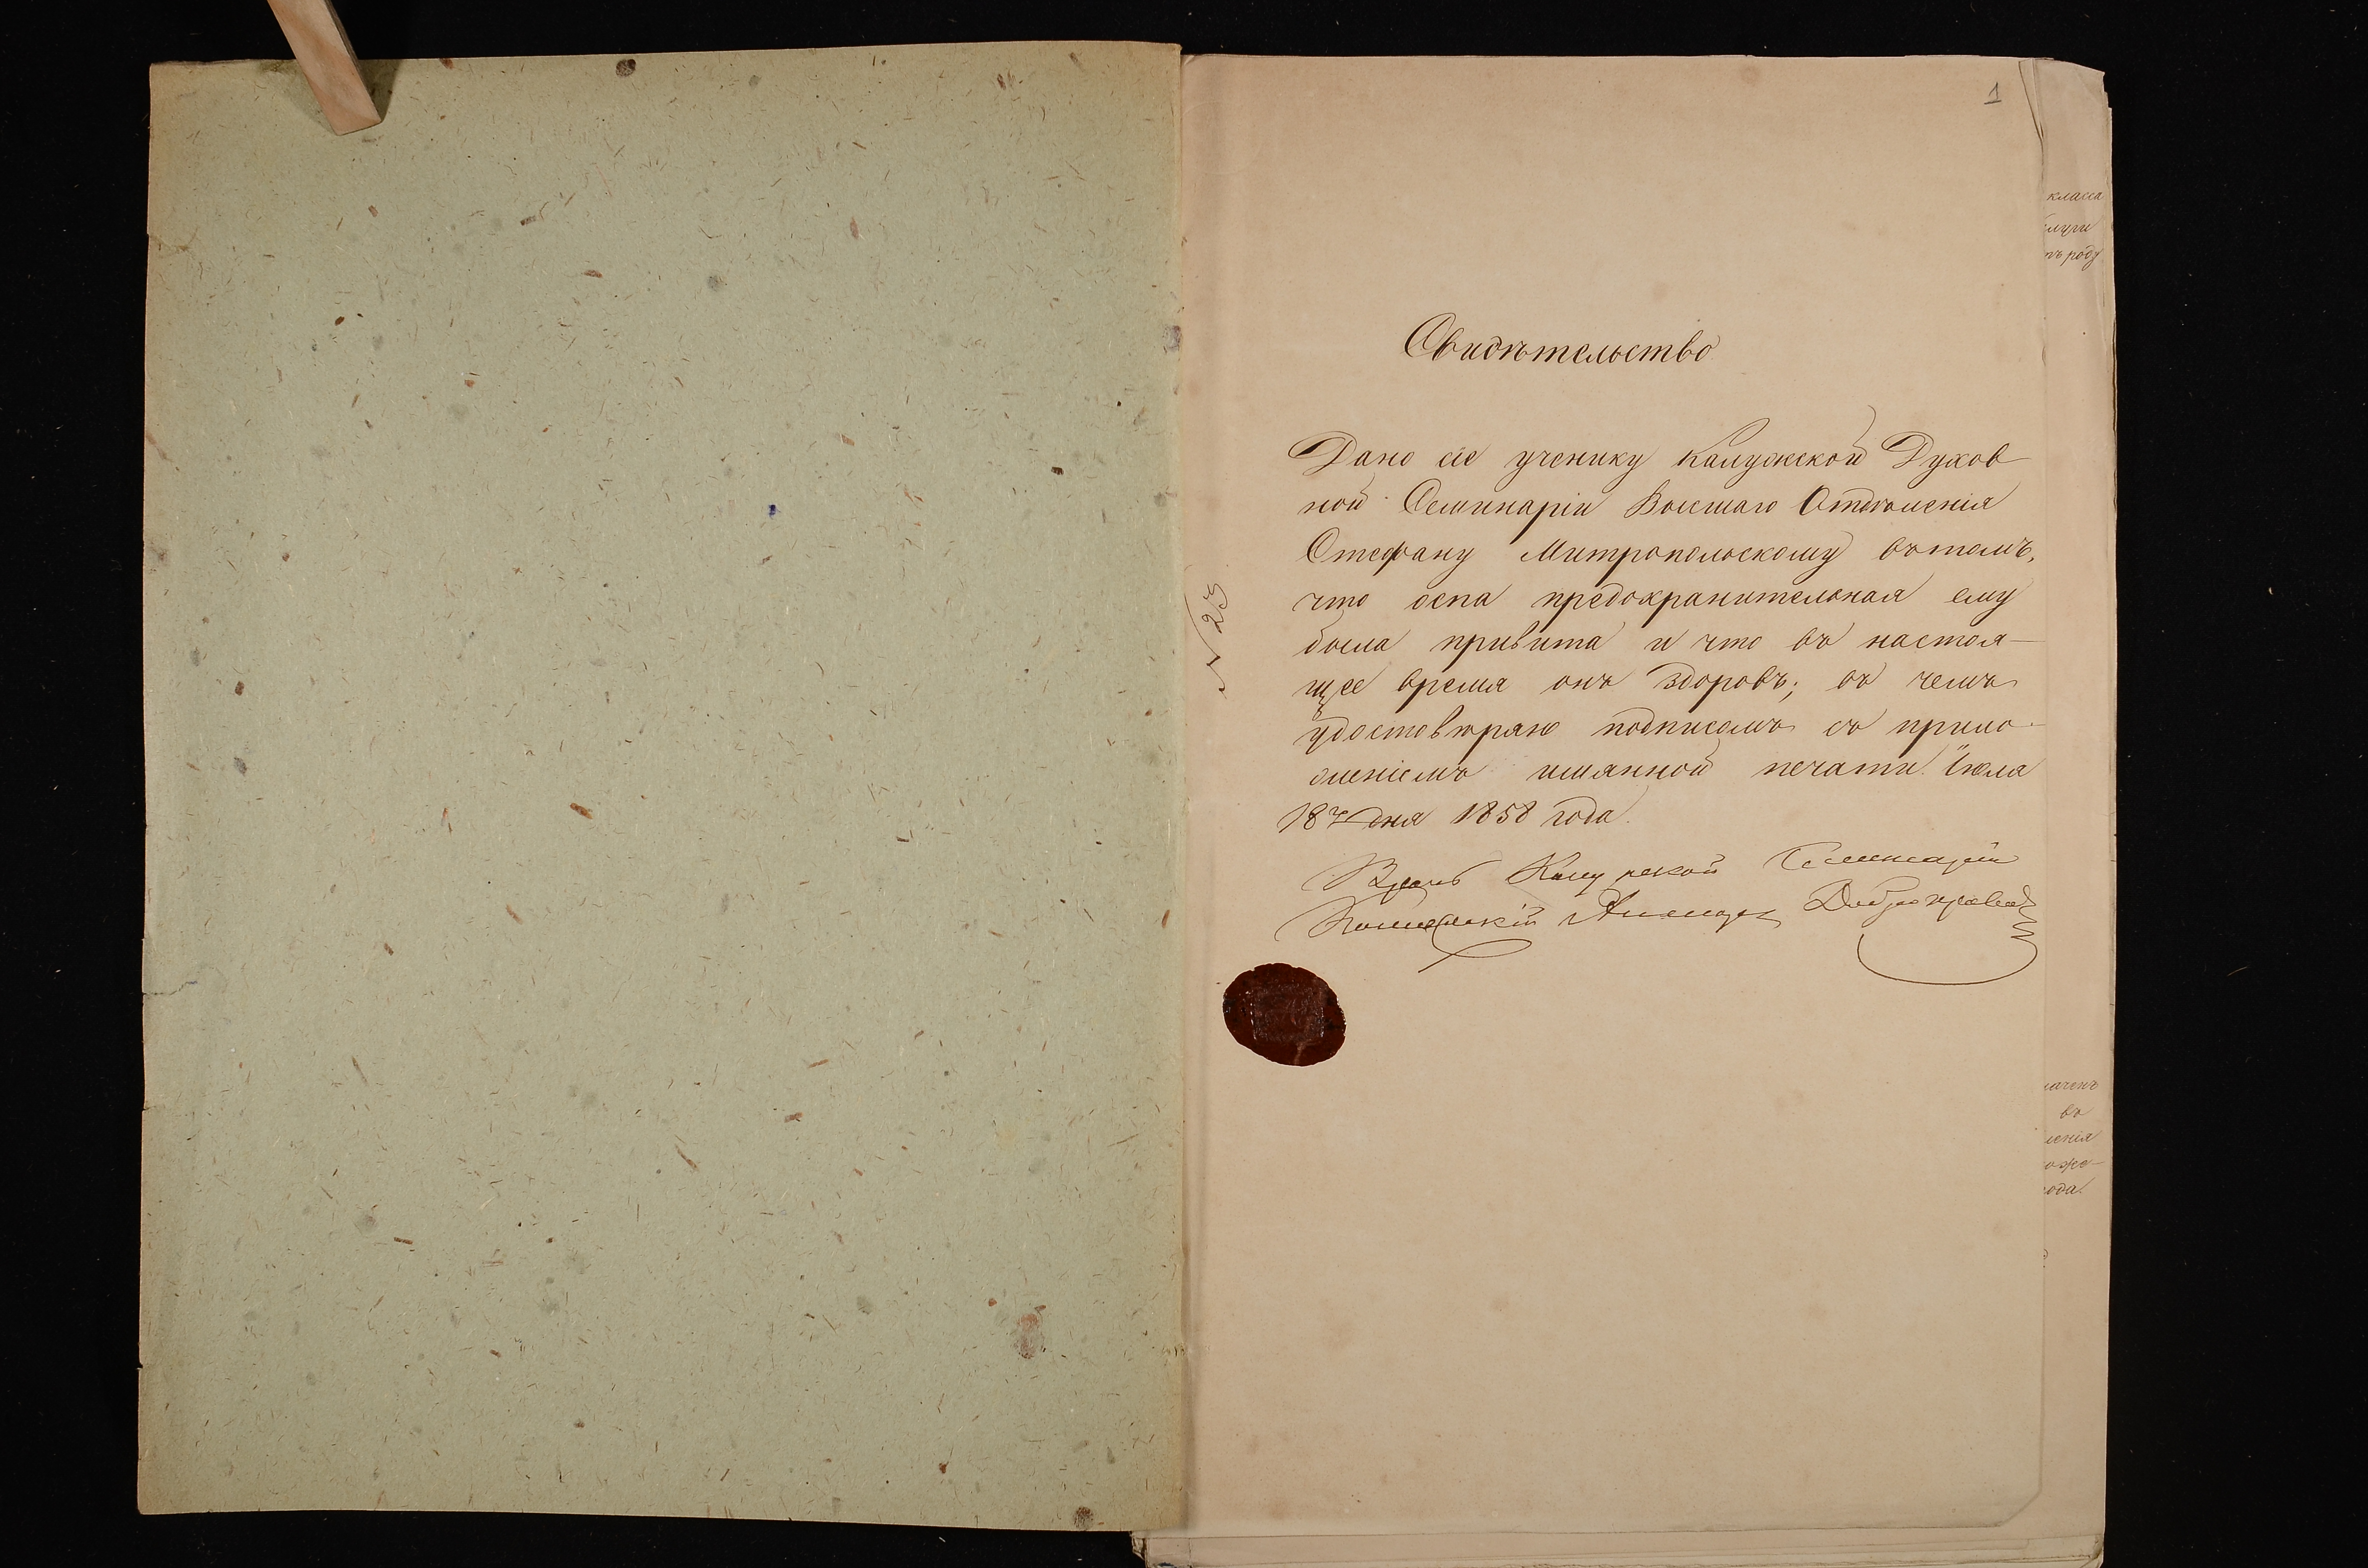 1
Свидѣтельство
Дано сіе ученику Калужской Духов
ной Семинаріи Высшаго Отдѣленія
Стефану Митропольскому въ томъ,
что оспа предохранительная ему
была привита и что въ настоя-
щее время онъ здоровъ; въ чемъ
удостовѣряю подписомъ съ прило-
женіемъ имянной печати. Іюля
18 дня 1858 года.
Врачь Калужской Семинаріи
№ 23
класса
роду
въ